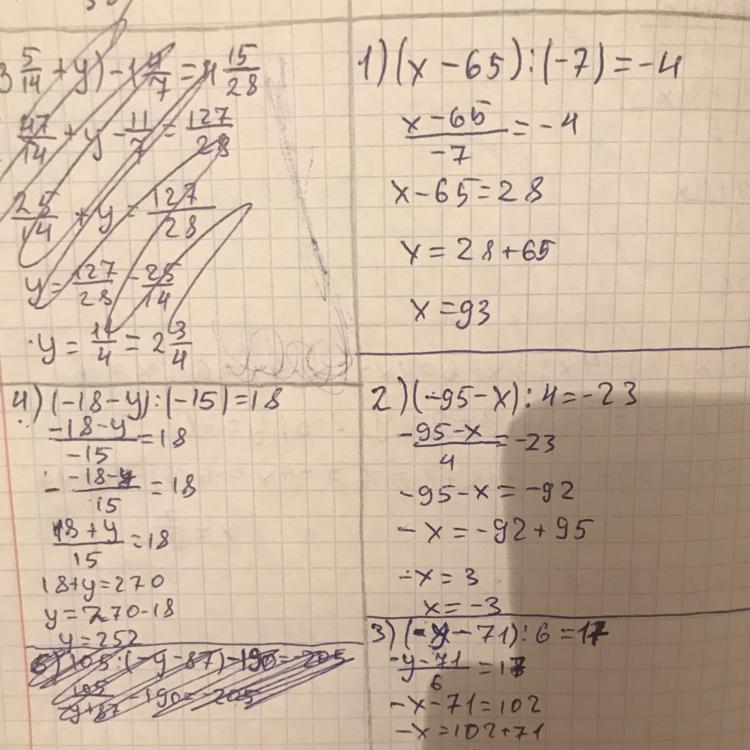 3 5/14 + y) - 1 4/7 = 4 15/28
47/14 + y - 11/7 = 127/28
25/14 + y = 127/28
y = 127/28 - 25/14
y = 11/4 = 2 3/4
1) (x - 65) : (-7) = -4
x - 65/-7 = -4
x - 65 = 28
x = 28 + 65
x = 93
4) (-18 - y) : (-15) = 18
-18 - y/-15 = 18
- -18 - y/15 = 18
18 + y/15 = 18
18 + y = 270
y = 270 - 18
y = 252
5) 105 : (-y - 87) - 190 = -205
105/-y+87 - 190 = -205
2) (-95 - x) : 4 = -23
-95 - x/4 = -23
-95 - x = -92
-x = -92 + 95
-x = 3
x = -3
3) (-y - 71) : 6 = 17
-y - 71/6 = 17
-x - 71 = 102
-x = 102 + 71